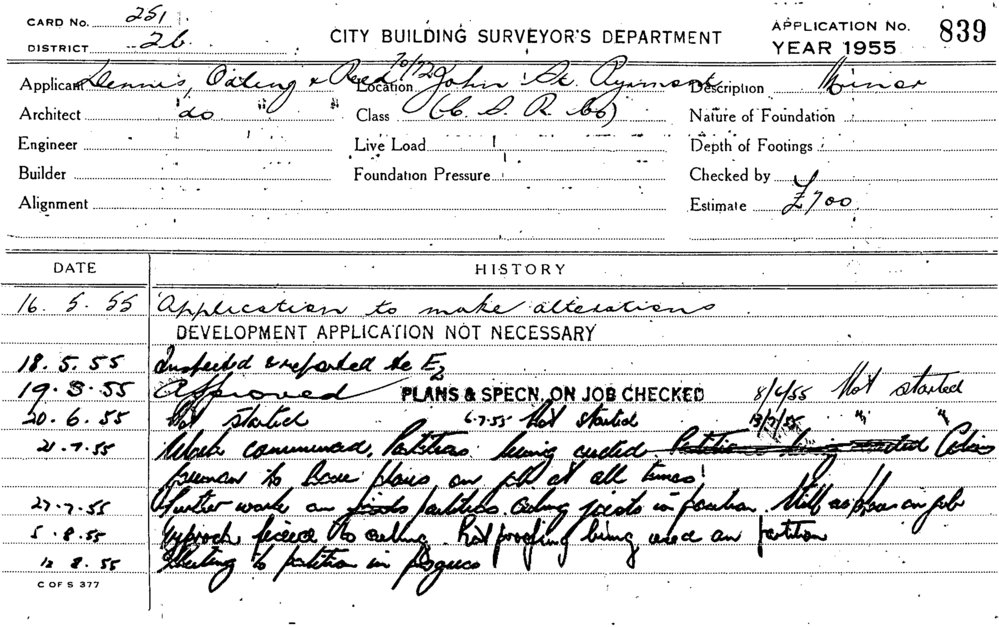 CARD No. 251
DISTRICT 26
CITY BUILDING SURVEYOR'S DEPARTMENT
APPLICATION No. 839
YEAR 1955
Applicant Dennis, &
Location 70/72 John St. Pyrmont
Description Minor
Architect do " "
Class (C. S. R. Co)
Nature of Foundation
Engineer
Live Load
Depth of Footings
Builder
Foundation Pressure
Checked by
Alignment
Estimate £700
DATE HISTORY
16. 5. 55 Application to make alterations
DEVELOPMENT APPLICATION NOT NECESSARY
18. 5. 55 Inspected & reported E2
19. 5. 55 Approved PLANS & SPECN. ON JOB CHECKED 8/6/55 Not started
20. 6. 55 Not started 6.7.55 Not started 13/7/55 " "
21. 7. 55 Work commenced. Partitions being erected
foreman to have plans on job at all times
27. 7. 55 Further work on partitions. Ceiling joists in position. Still no plans on job
5. 8. 55 Gyprock fixed to ceiling. proofing being used on partition
12 8. 55 Sheeting to partition in progress
C OF S 377